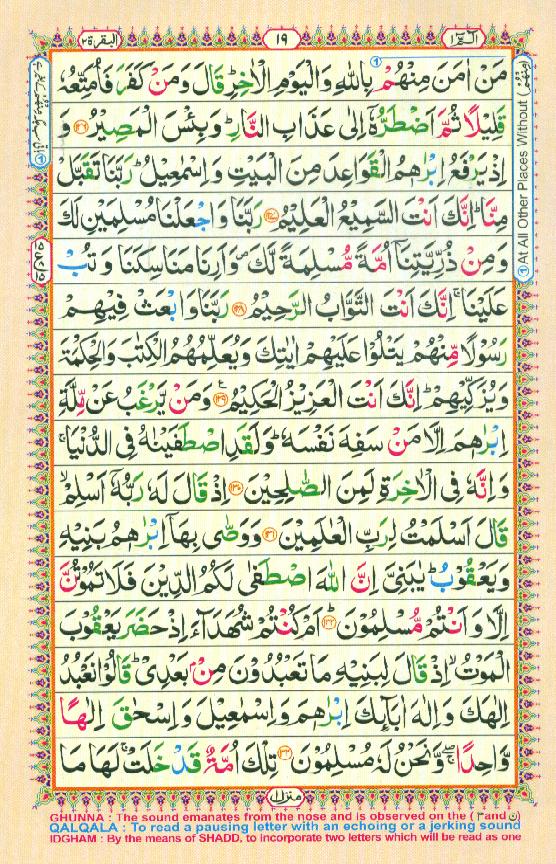 الٓمّٓ ۱
۱۹
البقرة ۲
مَنْ اٰمَنَ مِنْهُمْ بِاللّٰهِ وَالْيَوْمِ الْاٰخِرِؕ قَالَ وَمَنْ كَفَرَ فَاُمَتِّعُهٗ
قَلِيْلًا ثُمَّ اَضْطَرُّهٗۤ اِلٰى عَذَابِ النَّارِؕ وَبِئْسَ الْمَصِيْرُ ﴿۱۲۶﴾ وَ
اِذْ يَرْفَعُ اِبْرٰهٖمُ الْقَوَاعِدَ مِنَ الْبَيْتِ وَاِسْمٰعِيْلُؕ رَبَّنَا تَقَبَّلْ
مِنَّاؕ اِنَّكَ اَنْتَ السَّمِيْعُ الْعَلِيْمُ ﴿۱۲۷﴾ رَبَّنَا وَاجْعَلْنَا مُسْلِمَيْنِ لَكَ
وَمِنْ ذُرِّيَّتِنَاۤ اُمَّةً مُّسْلِمَةً لَّكَ۪ وَاَرِنَا مَنَاسِكَنَا وَتُبْ
عَلَيْنَاۚ اِنَّكَ اَنْتَ التَّوَّابُ الرَّحِيْمُ ﴿۱۲۸﴾ رَبَّنَا وَابْعَثْ فِيْهِمْ
رَسُوْلًا مِّنْهُمْ يَتْلُوْا عَلَيْهِمْ اٰيٰتِكَ وَيُعَلِّمُهُمُ الْكِتٰبَ وَالْحِكْمَةَ
وَيُزَكِّيْهِمْؕ اِنَّكَ اَنْتَ الْعَزِيْزُ الْحَكِيْمُ ﴿۱۲۹﴾ وَمَنْ يَّرْغَبُ عَنْ مِّلَّةِ
اِبْرٰهٖمَ اِلَّا مَنْ سَفِهَ نَفْسَهٗؕ وَلَقَدِ اصْطَفَيْنٰهُ فِى الدُّنْيَاۚ
وَاِنَّهٗ فِى الْاٰخِرَةِ لَمِنَ الصّٰلِحِيْنَ ﴿۱۳۰﴾ اِذْ قَالَ لَهٗ رَبُّهٗۤ اَسْلِمْۙ
قَالَ اَسْلَمْتُ لِرَبِّ الْعٰلَمِيْنَ ﴿۱۳۱﴾ وَوَصّٰى بِهَاۤ اِبْرٰهٖمُ بَنِيْهِ
وَيَعْقُوْبُؕ يٰبَنِىَّ اِنَّ اللّٰهَ اصْطَفٰى لَكُمُ الدِّيْنَ فَلَا تَمُوْتُنَّ
اِلَّا وَاَنْتُمْ مُّسْلِمُوْنَ ﴿۱۳۲﴾ اَمْ كُنْتُمْ شُهَدَآءَ اِذْ حَضَرَ يَعْقُوْبَ
الْمَوْتُۙ اِذْ قَالَ لِبَنِيْهِ مَا تَعْبُدُوْنَ مِنْۢ بَعْدِىْؕ قَالُوْا نَعْبُدُ
اِلٰهَكَ وَاِلٰهَ اٰبَآئِكَ اِبْرٰهٖمَ وَاِسْمٰعِيْلَ وَاِسْحٰقَ اِلٰهًا
وَّاحِدًاۖۚ وَّنَحْنُ لَهٗ مُسْلِمُوْنَ ﴿۱۳۳﴾ تِلْكَ اُمَّةٌ قَدْ خَلَتْۚ لَهَا مَا
At All Other Places Without
منزل ۱
GHUNNA : The sound emanates from the nose and is observed on the (م and ن)
QALQALA : To read a pausing letter with an echoing or a jerking sound
IDGHAM : By the means of SHADD, to incorporate two letters which will be read as one